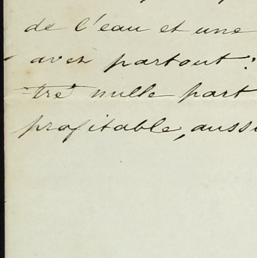 de l'eau et une
avez partout:
tre nulle part
profitable, aussi